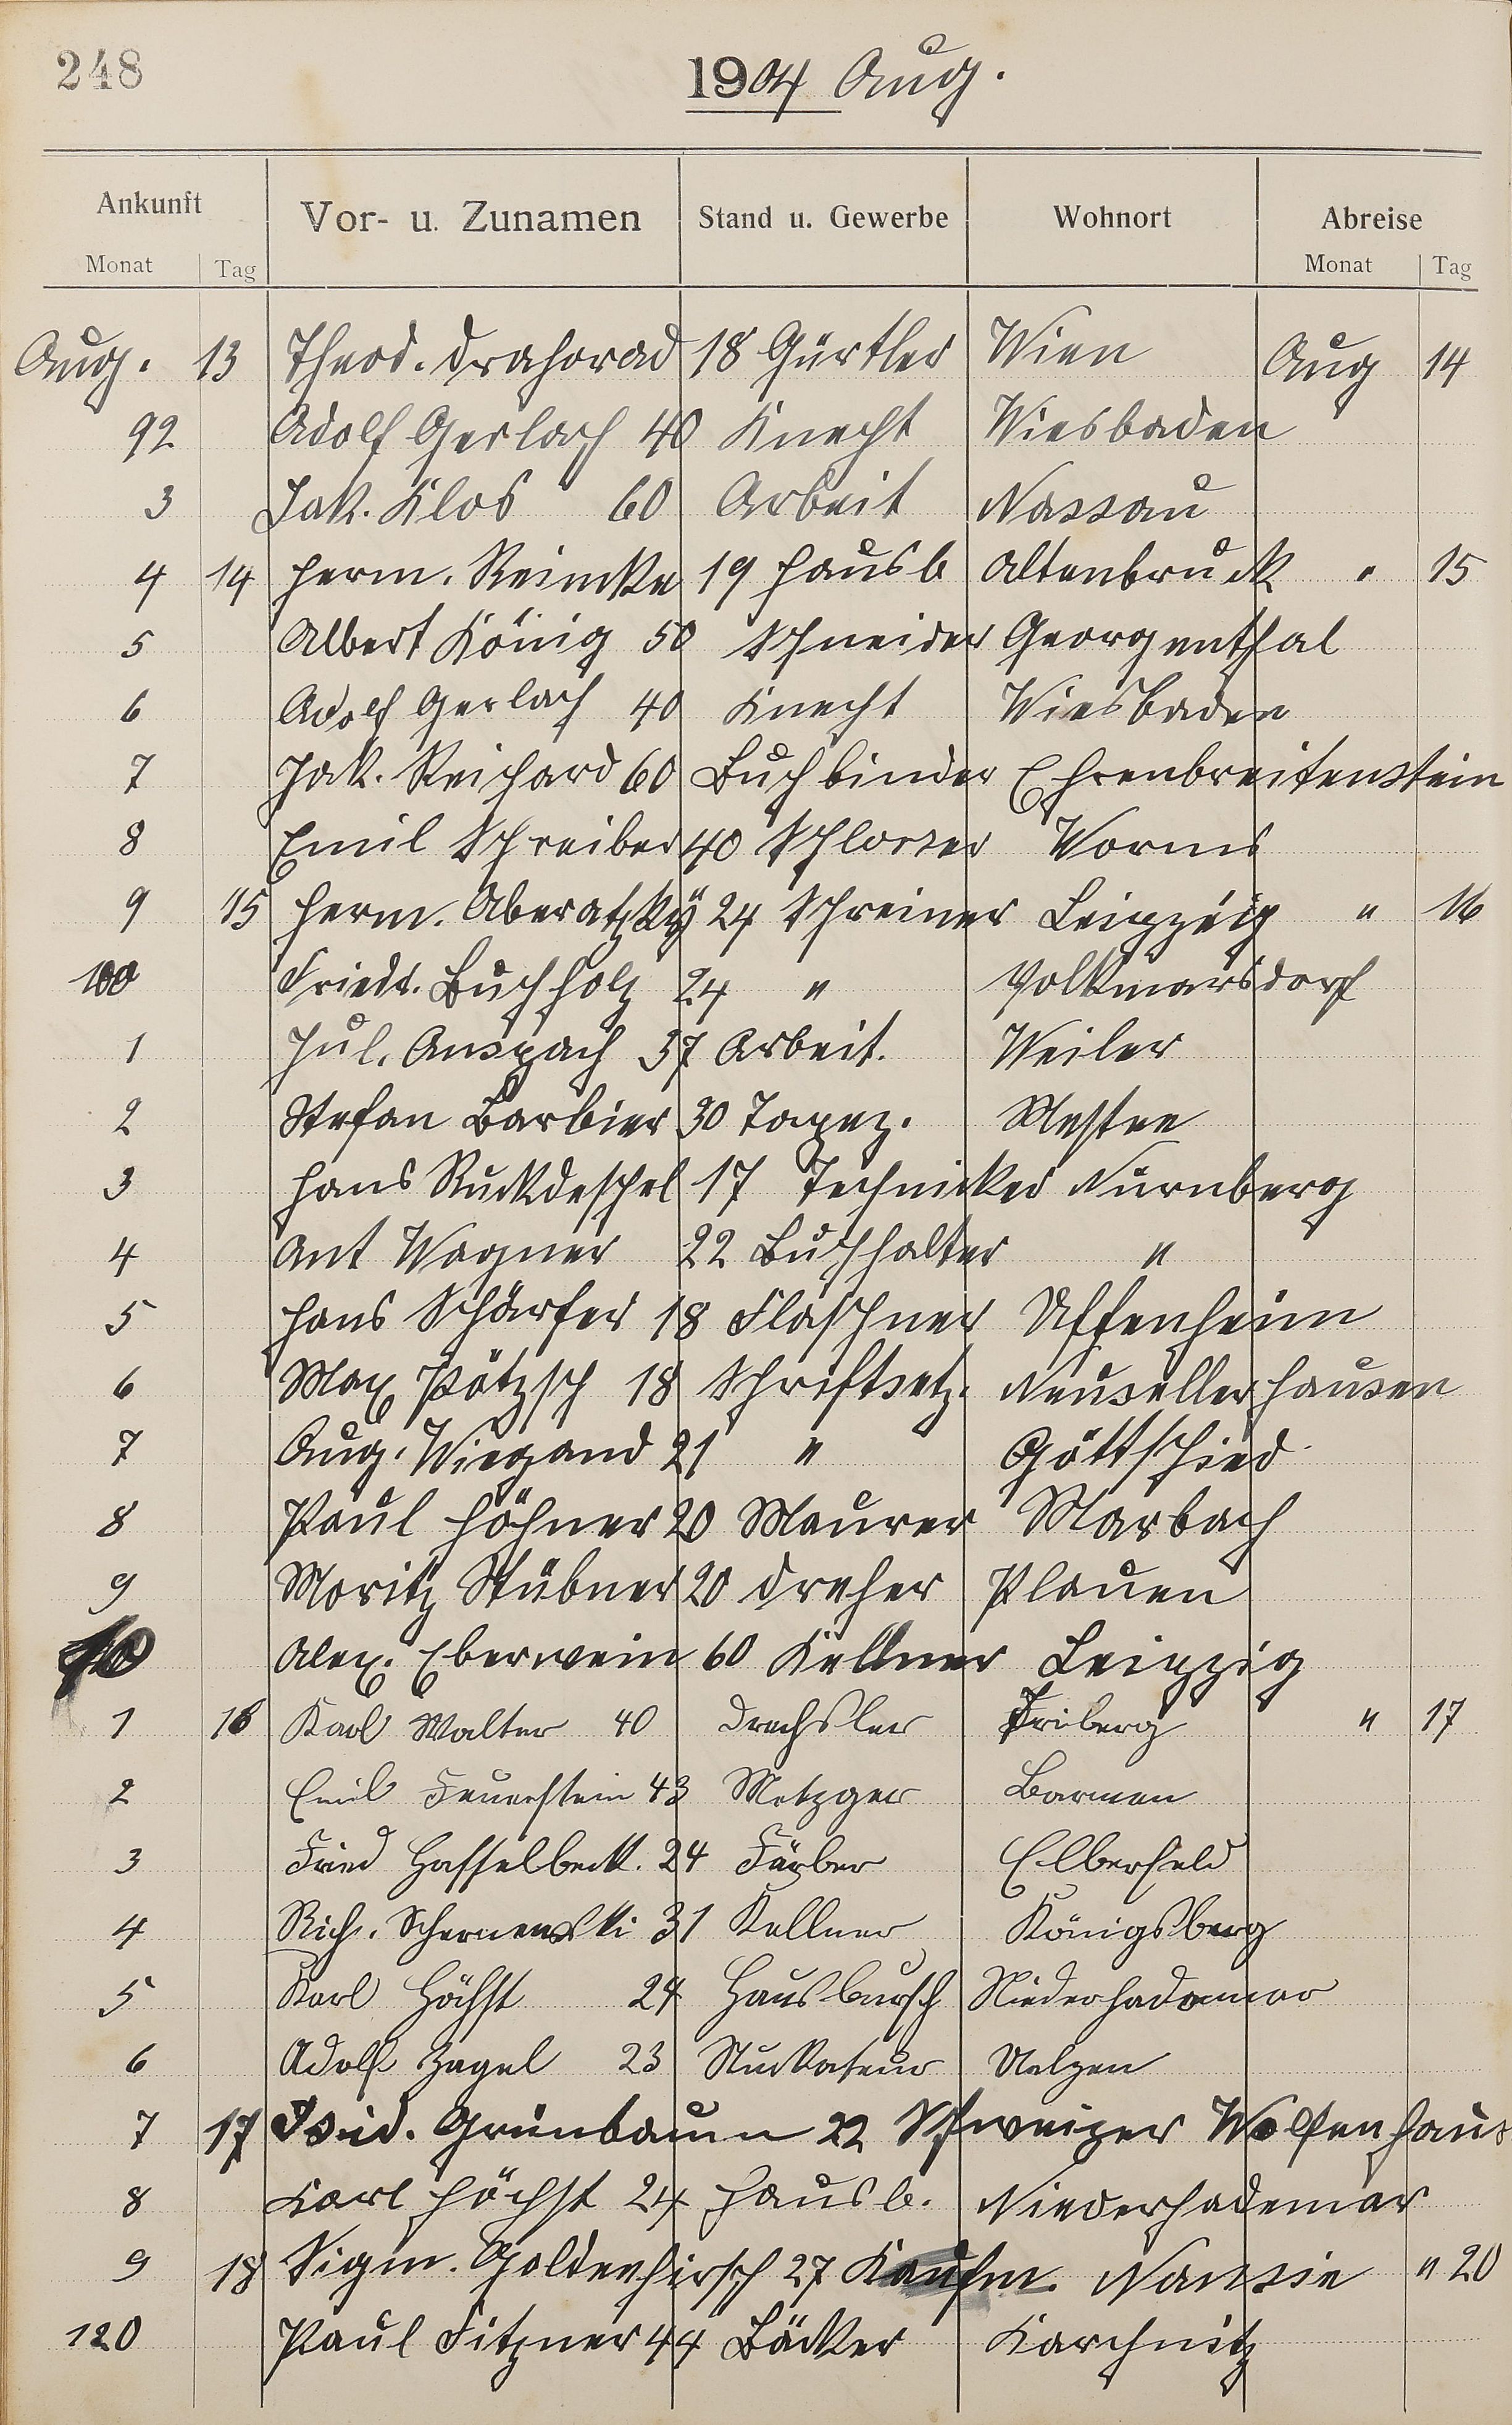 248
1904 Aug.
Ankunft Vor- u. Zunamen Stand u. Gewerbe Wohnort Abreise
Monat Tag Monat Tag
Aug. 13 Theod. Drahorad 18 Gürtler Wien Aug 14
92 Adolf Gerlach 40 Knecht Wiesbaden
3 Jak. Klos 60 Arbeit Nassau
4 14 Herm. Reimke 19 Hausb Altenbruck " 15
5 Albert König 50 Schneider Georgenthal
6 Adolf Gerlach 40 Knecht Wiesbaden
7 Jak. Reichard 60 Buchbinder Ehrenbreitenstein
8 Emil Schreiber 40 Schlosser Worms
9 15 Herm. Aberatzky 24 Schreiner Leipzig " 16
100 Friedr. Buchholz 24 " Volkmarsdorf
1 Jul. Anspach 37 Arbeit. Weiler
2 Stefan Barbier 30 Tapez.
3 Hans Ruckdeschel 17 Techniker Nürnberg
4 Ant Wagner 22 Buchhalter "
5 Hans Schärfer 18 Flaschner Uffenheim
6 Max Pötzsch 18 Schriftsetz. Neusellerhausen
7 Aug. Wiegand 21 " Göttschied
8 Paul Höhner 20 Maurer Marbach
9 Moritz Stübner 20 Dreher Plauen
10 Alex. Eberwein 60 Kellner Leipzig
1 16 Karl Walter 40 Drechsler Triberg " 17
2 Emil Feuerstein 43 Metzger Barmen
3 Fried Hasselbeck. 24 Färber Elberfeld
4 Rich. 31 Kellner Königsberg
5 Karl Höchst 24 Hausbursch Niederhadamar
6 Adolf Zagel 23 Stuckateur Uelzen
7 17 Isid. Grünbaum 22 Schweizer Wolfenhaus
8 Karl Höchst 24 Hausb. Niederhademar
9 18 Sigm. Goldenhirsch 27 Kaufm. Nansie " 20
120 Paul Fitzner 44 Bäcker Karchnitz